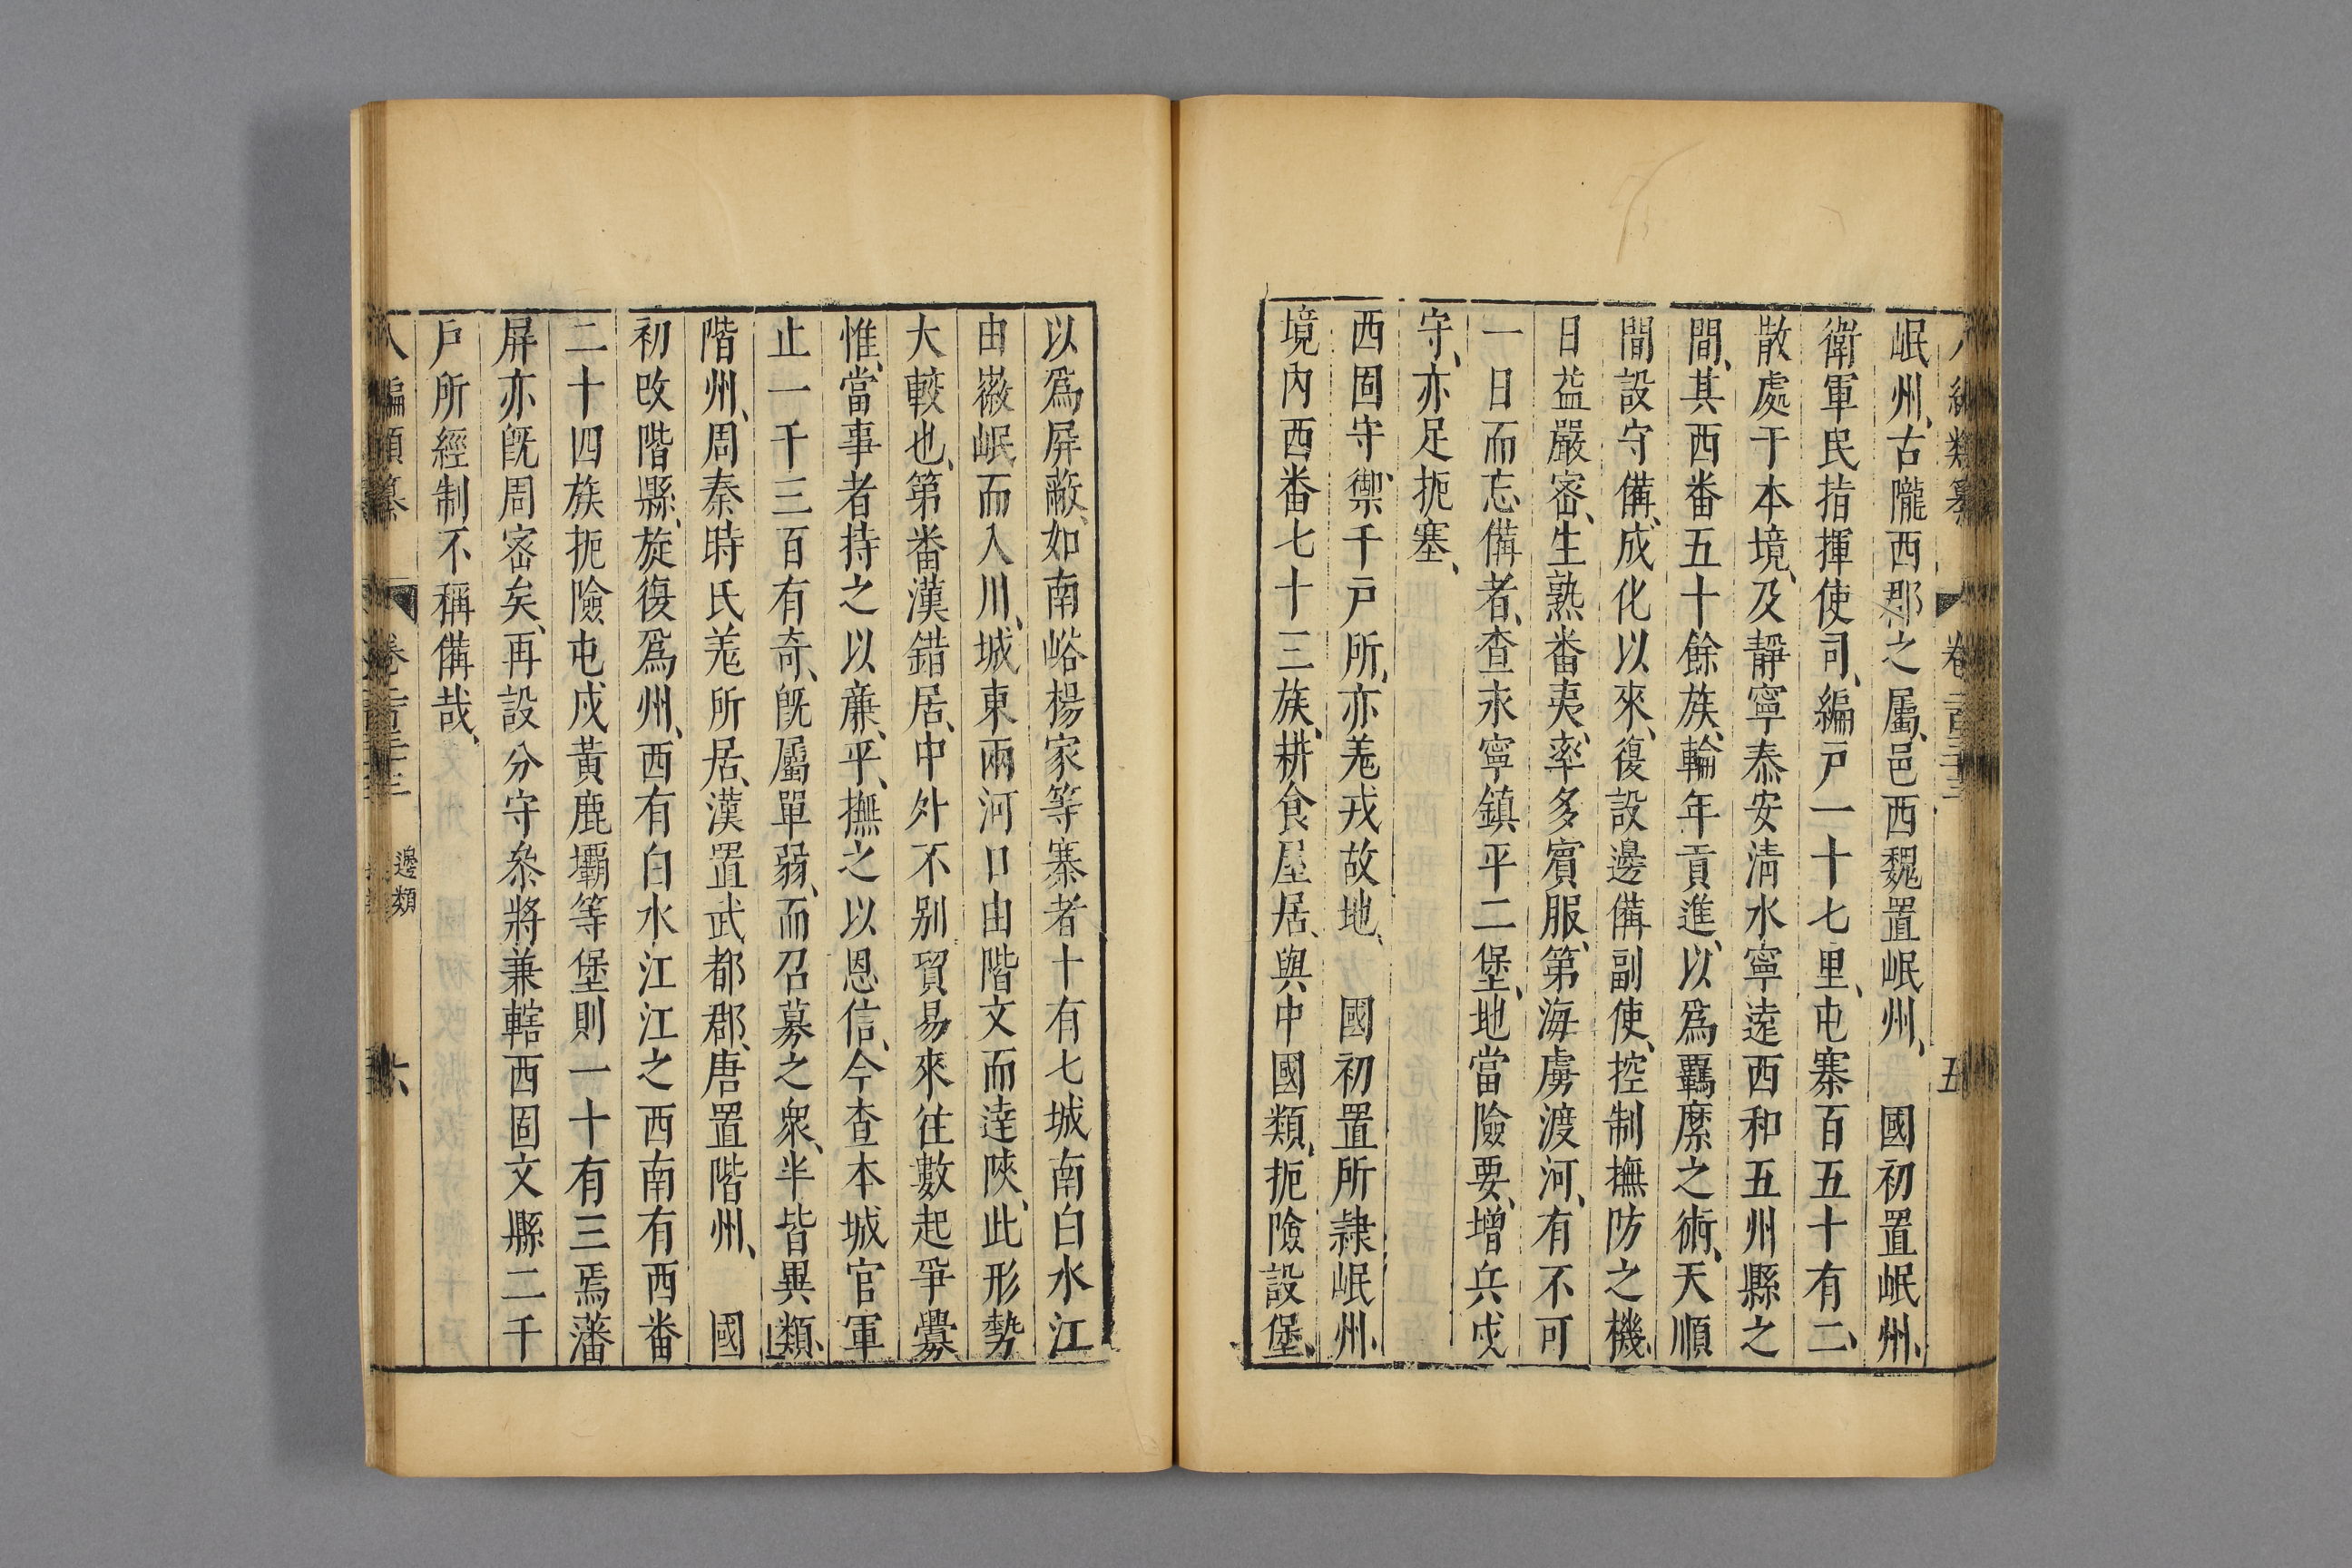 八編類纂 卷二百三十三 五
岷州、古隴西郡之屬、邑西魏置岷州、 國初置岷州、
衛軍民指揮使司、編戸一十七里、屯寨百五十有二、
散處于本境、及靜寧泰安淸水寧遠西和五州縣之
間、其西番五十餘族、輪年貢進、以爲羈縻之術、天順
間設守備、成化以來、復設邊備副使、控制撫防之機、
日益嚴密、生熟番夷、率多賓服、第海虜渡河、有不可
一日而忘備者、查永寧鎮平二堡、地當險要、增兵戍
守、亦足扼塞、
西固守禦千戸所、亦羗戎故地、 國初置所隷岷州、
境內西番七十三族、耕食屋居、與中國類、扼險設堡、
以爲屏蔽、如南峪楊家等寨者十有七城南白水江
由嶶岷而入川、城東兩河口由階文而達陜、此形勢
大較也、第番漢錯居、中外不别貿易來往數起爭釁
惟、當事者持之以亷、平、撫之以恩信、今查本城官軍
止一千三百有奇、旣屬單弱、而召募之衆、半皆異類、
階州、周秦時氏羗所居、漢置武都郡、唐置階州、 國
初改階縣、旋復爲州、西有白水江江之西南有西番
二十四族扼險屯戍黃鹿壩等堡則一十有三焉藩
屏亦旣周密矣、再設分守叅將兼轄西固文縣二千
戸所經制不稱備哉、
八編類纂 卷二百三十三 邊類 六